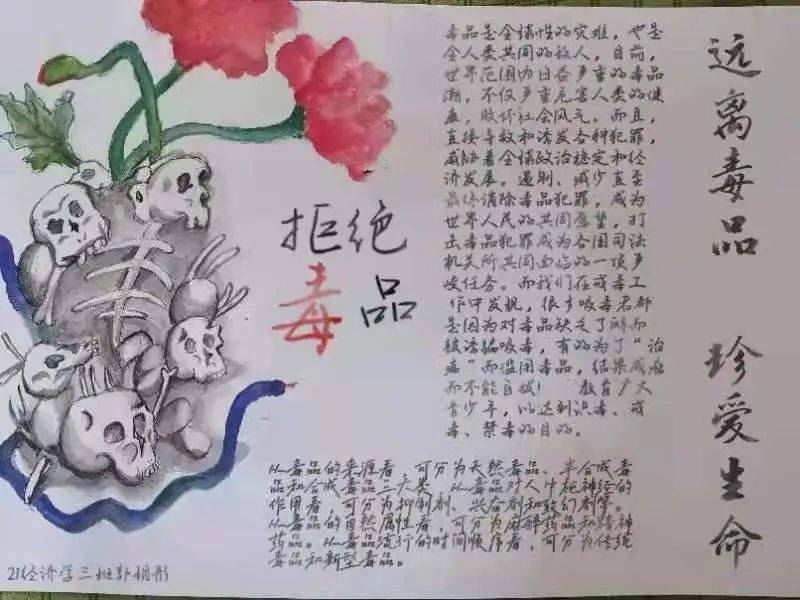 远离毒品 珍爱生命
拒绝
毒品
毒品是全球性的灾难，也是
全人类共同的敌人，目前，
世界范围内日益严重的毒品
潮，不仅严重危害人类的健
康，败坏社会风气，而且，
直接导致和诱发各种犯罪，
威胁着全球政治稳定和经
济发展。遏制、减少直至
最终消除毒品犯罪，成为
世界人民的共同愿望，打
击毒品犯罪成为各国司法
机关所共同面临的一项严
峻任务。而我们在戒毒工
作中发现，很多吸毒者都
是因为对毒品缺乏了解而
被诱骗吸毒，有的为了“治
病”而滥用毒品，结果成瘾
而不能自拔！ 教育广大
青少年，以达到识毒、戒
毒、禁毒的目的。
从毒品的来源看，可分为天然毒品、半合成毒
品和合成毒品三大类。从毒品对人中枢神经的
作用看，可分为抑制剂、兴奋剂和致幻剂等。
从毒品的自然属性看，可分为麻醉药品和精神
药品。从毒品流行的时间顺序看，可分为传统
毒品和新型毒品。
21经济学三班郭